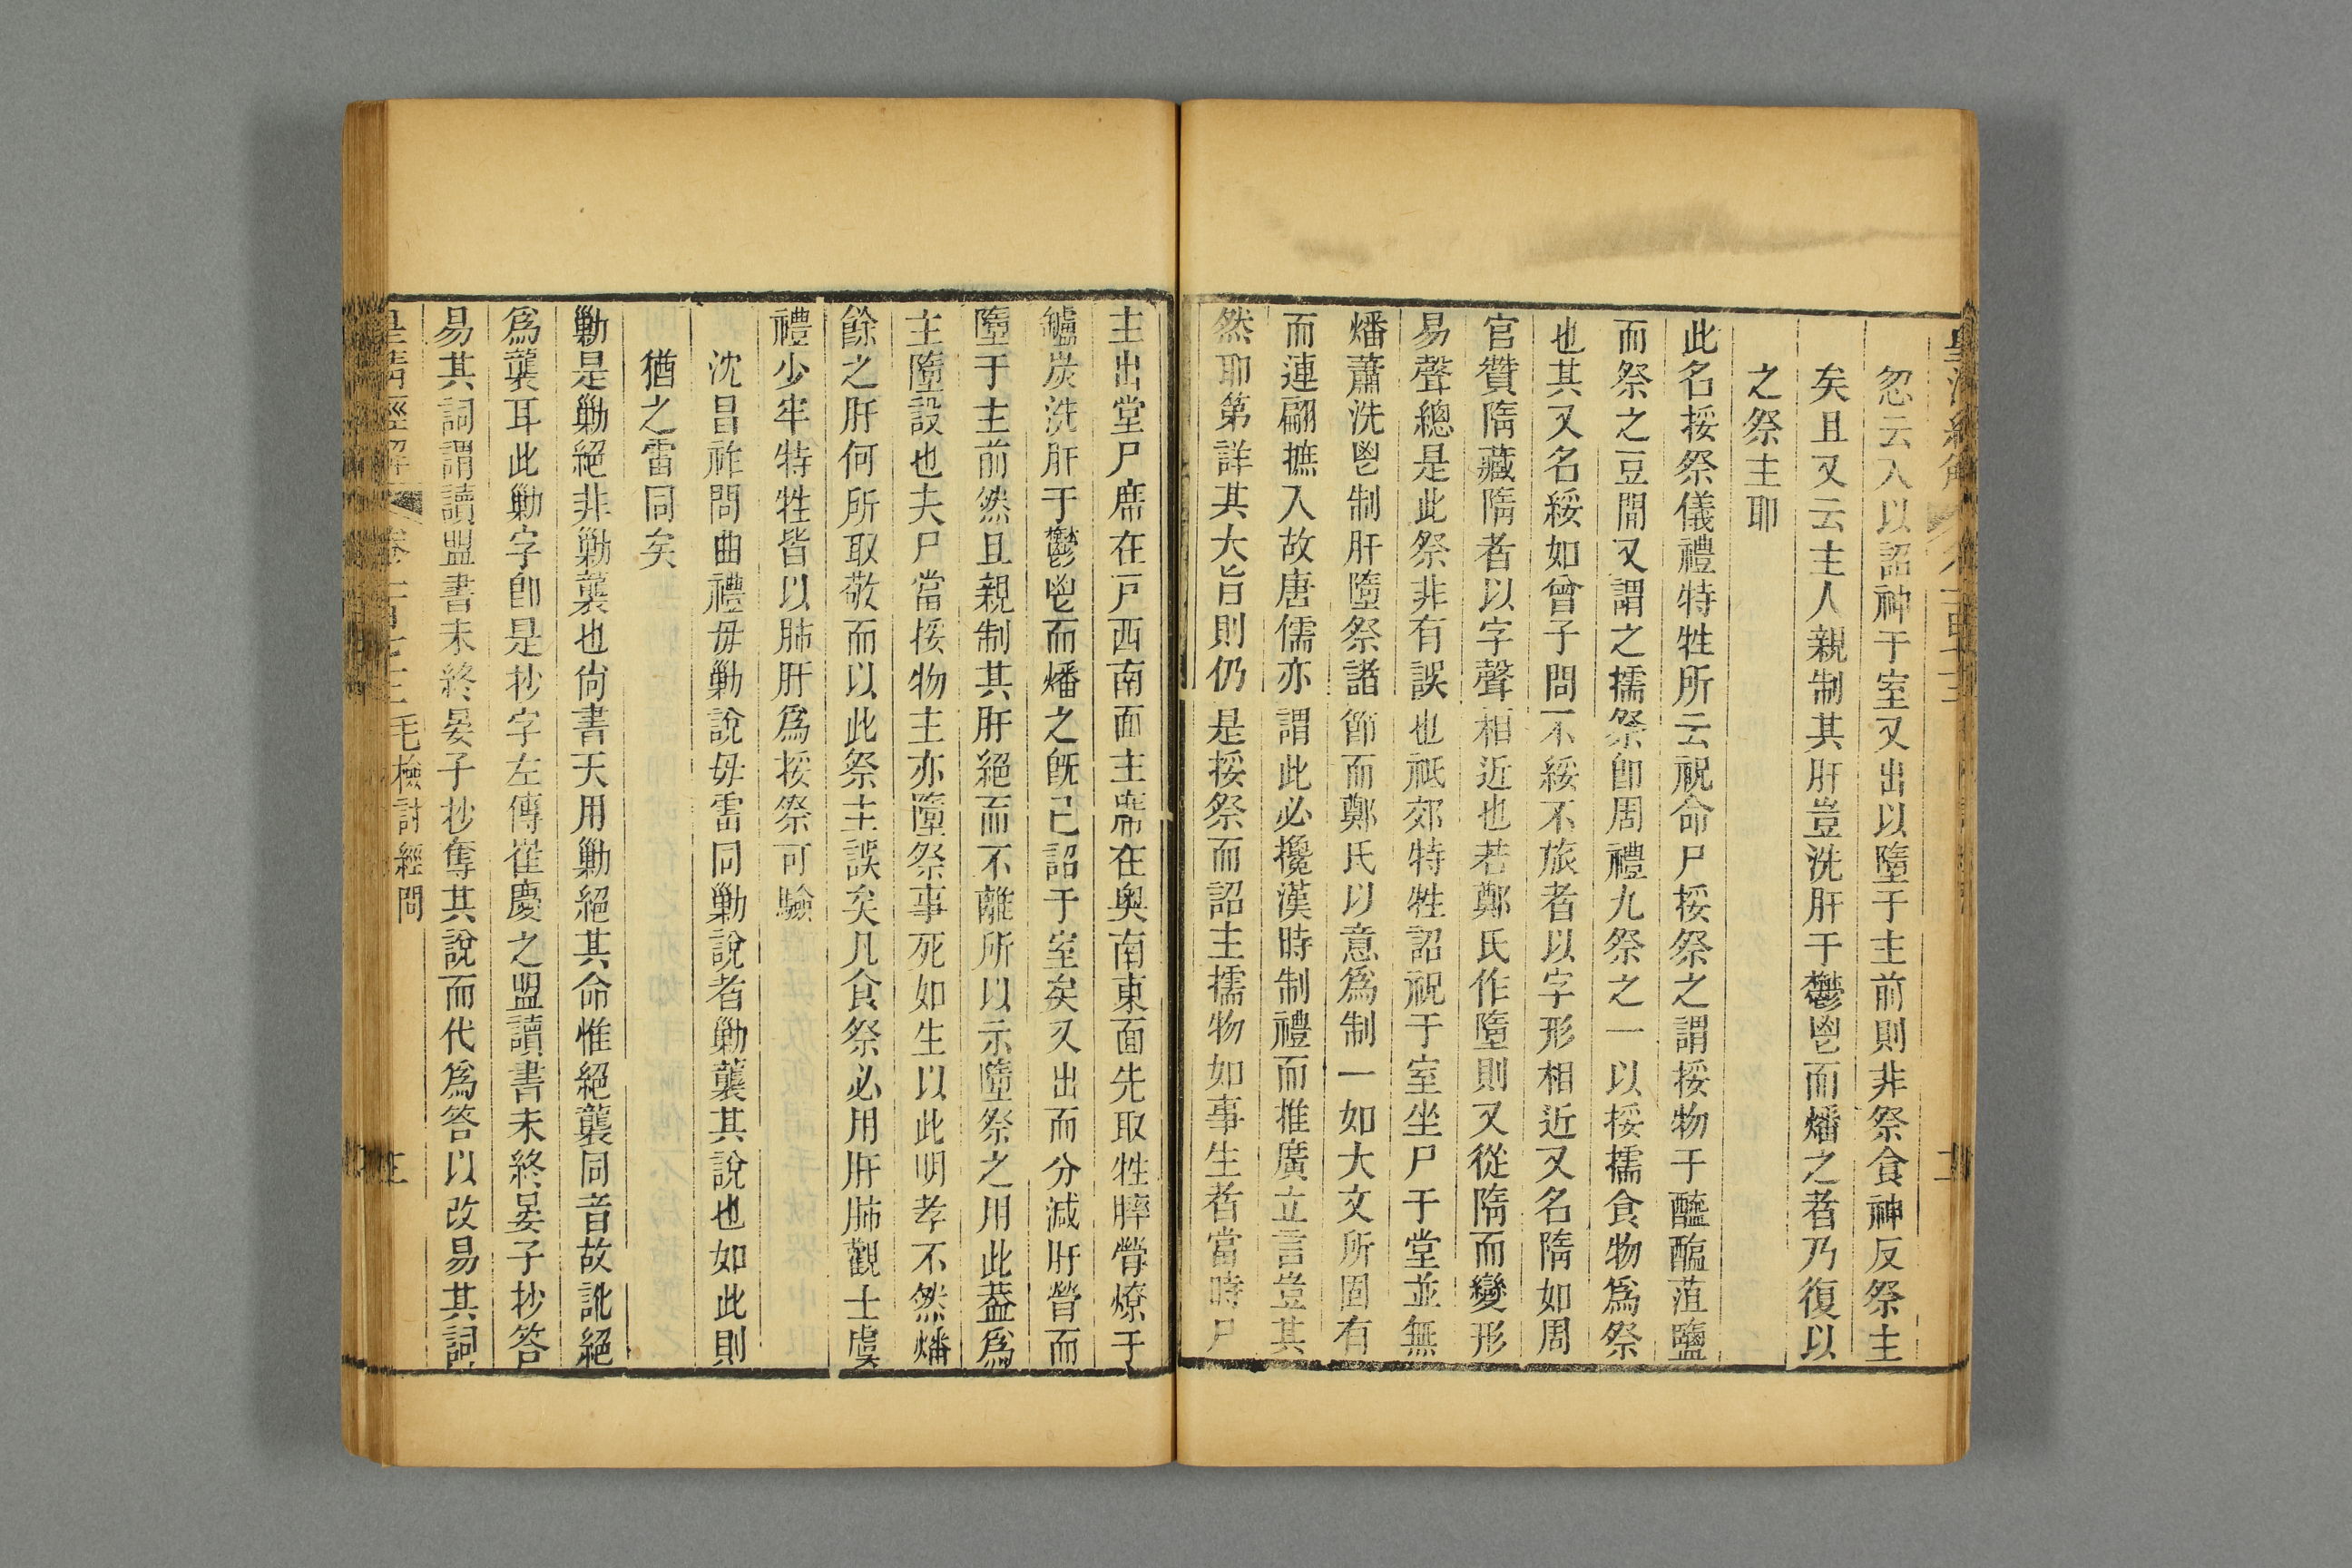 忽云入以詔神于室又出以墮于主前則非祭食神反祭主
矣且又云主人親制其肝豈洗肝于鬱鬯而燔之者乃復以
之祭主耶
此名挼祭儀禮特牲所云祝命尸挼祭之謂挼物于醯醢菹鹽
而祭之豆閒又謂之擩祭卽周禮九祭之一以挼擩食物爲祭
也其又名綏如曾子問不綏不旅者以字形相近又名隋如周
官贊隋藏隋者以字聲相近也若鄭氏作墮則又從隋而變形
易聲總是此祭非有誤也祗郊特牲詔祝于室坐尸于堂並無
燔蕭洗鬯制肝墮祭諸節而鄭氏以意爲制一如大文所固有
而連翩摭入故唐儒亦謂此必攙漢時制禮而推廣立言豈其
然耶第詳其大旨則仍是挼祭而詔主擩物如事生者當時尸
主出堂尸席在戸西南面主席在奧南東面先取牲膟膋燎于
鑪炭洗肝于鬱鬯而燔之旣已詔于室矣又出而分減肝膋而
墮于主前然且親制其肝絕而不離所以示墮祭之用此葢爲
主墮設也夫尸當挼物主亦墮祭事死如生以此明孝不然燔
餘之肝何所取敬而以此祭主誤矣凡食祭必用肝肺觀士虞
禮少牢特牲皆以肺肝爲挼祭可驗
沈昌祚問曲禮毋勦說毋雷同勦說者勦襲其說也如此則
猶之雷同矣
勦是勦絕非勦襲也尙書天用勦絕其命惟絕襲同音故訛絕
爲襲耳此勦字卽是抄字左傳崔慶之盟讀書未終晏子抄答
易其詞謂讀盟書未終晏子抄奪其說而代爲答以改易其詞
皇淸經解
毛檢討經問